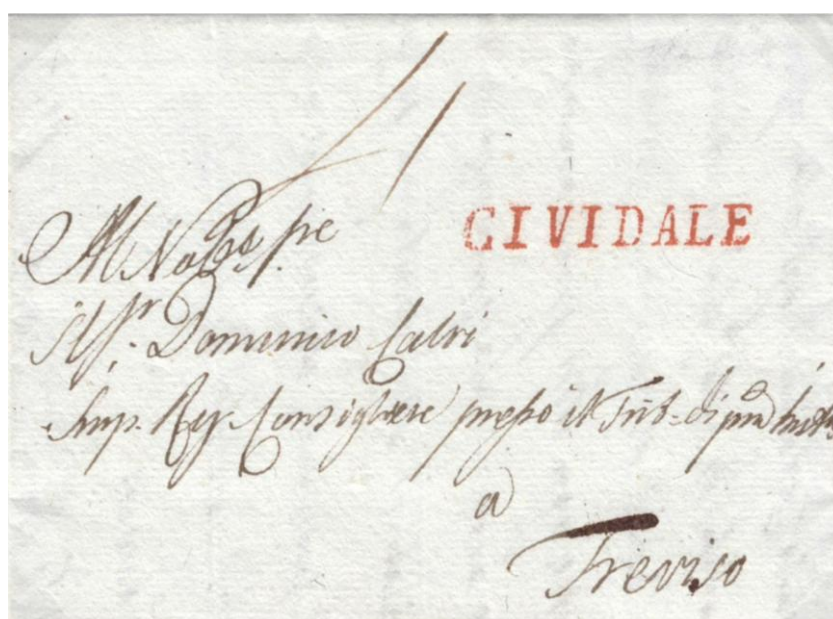 CIVIDALE
Al Nob.
Il Sr. Dominico Calvi
Imp. Reg. Consigliere presso il Trib. di pma
a
Treviso